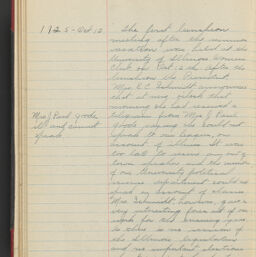 1925 - Oct 12
The first luncheon
meeting after the summer
vacation was held at the
University of Illinois Womens
Club on Oct. 12. After the
luncheon the President,
Mrs. E.C. Schmidt announced
that at nine o'clock that
morning she had received a
telegram from Mrs. J. Paul
Goode saying she could not
speak to our league, on
account of illness. It was
too late to secure an out of
town speaker and the
of our University political
science department could not
speak on account of classes.
Mrs. Schmidt, however, gave a
very interesting forecast of our
work for the ensuing year.
As there is no session of
the Illinois legislature
and no important elections
Mrs. J. Paul Goode
ill and cannot
speak